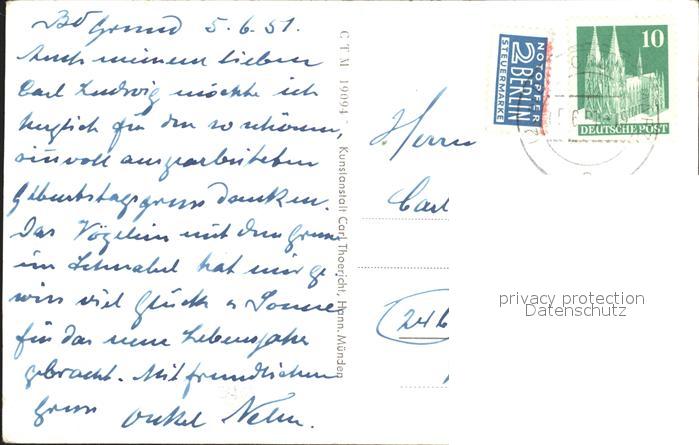 Bd Grund 5.6.51.
Auch meinem lieben
Carl Ludwig möchte ich
herzlich für den so schönen,
sinnvoll ausgearbeiteten
Geburtstagsgruss danken.
Das Vögelein mit dem Grusse
im Schnabel hat mir ge
wiss viel Glück u Sonne
für das neue Lebensjahr
gebracht. Mit freundlichem
Gruss Onkel
CTM 19094 Kunstanstalt Carl Thoericht, Hann. Münden
NOTOPFER
2 BERLIN
STEUERMARKE
10
DEUTSCHE POST
Herrn
Carl
(24b
privacy protection
Datenschutz